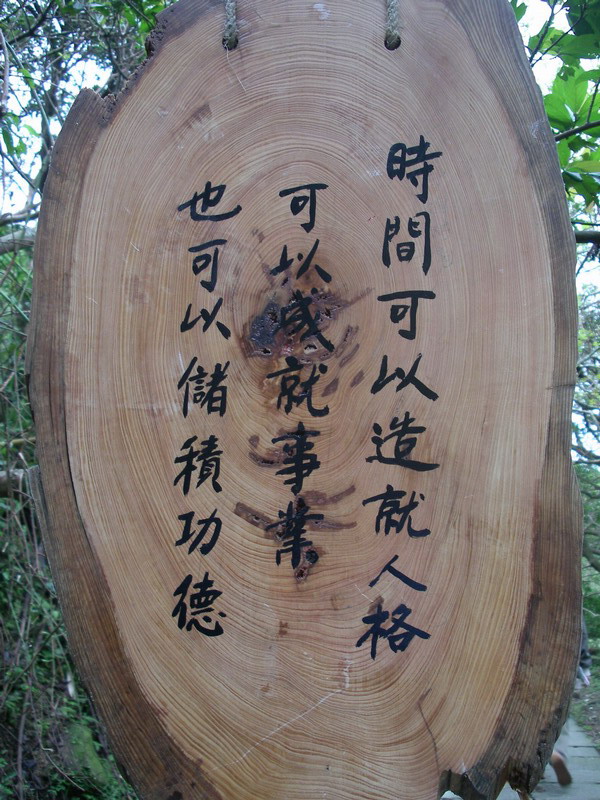 時間可以造就人格
可以成就事業
也可以儲積功德